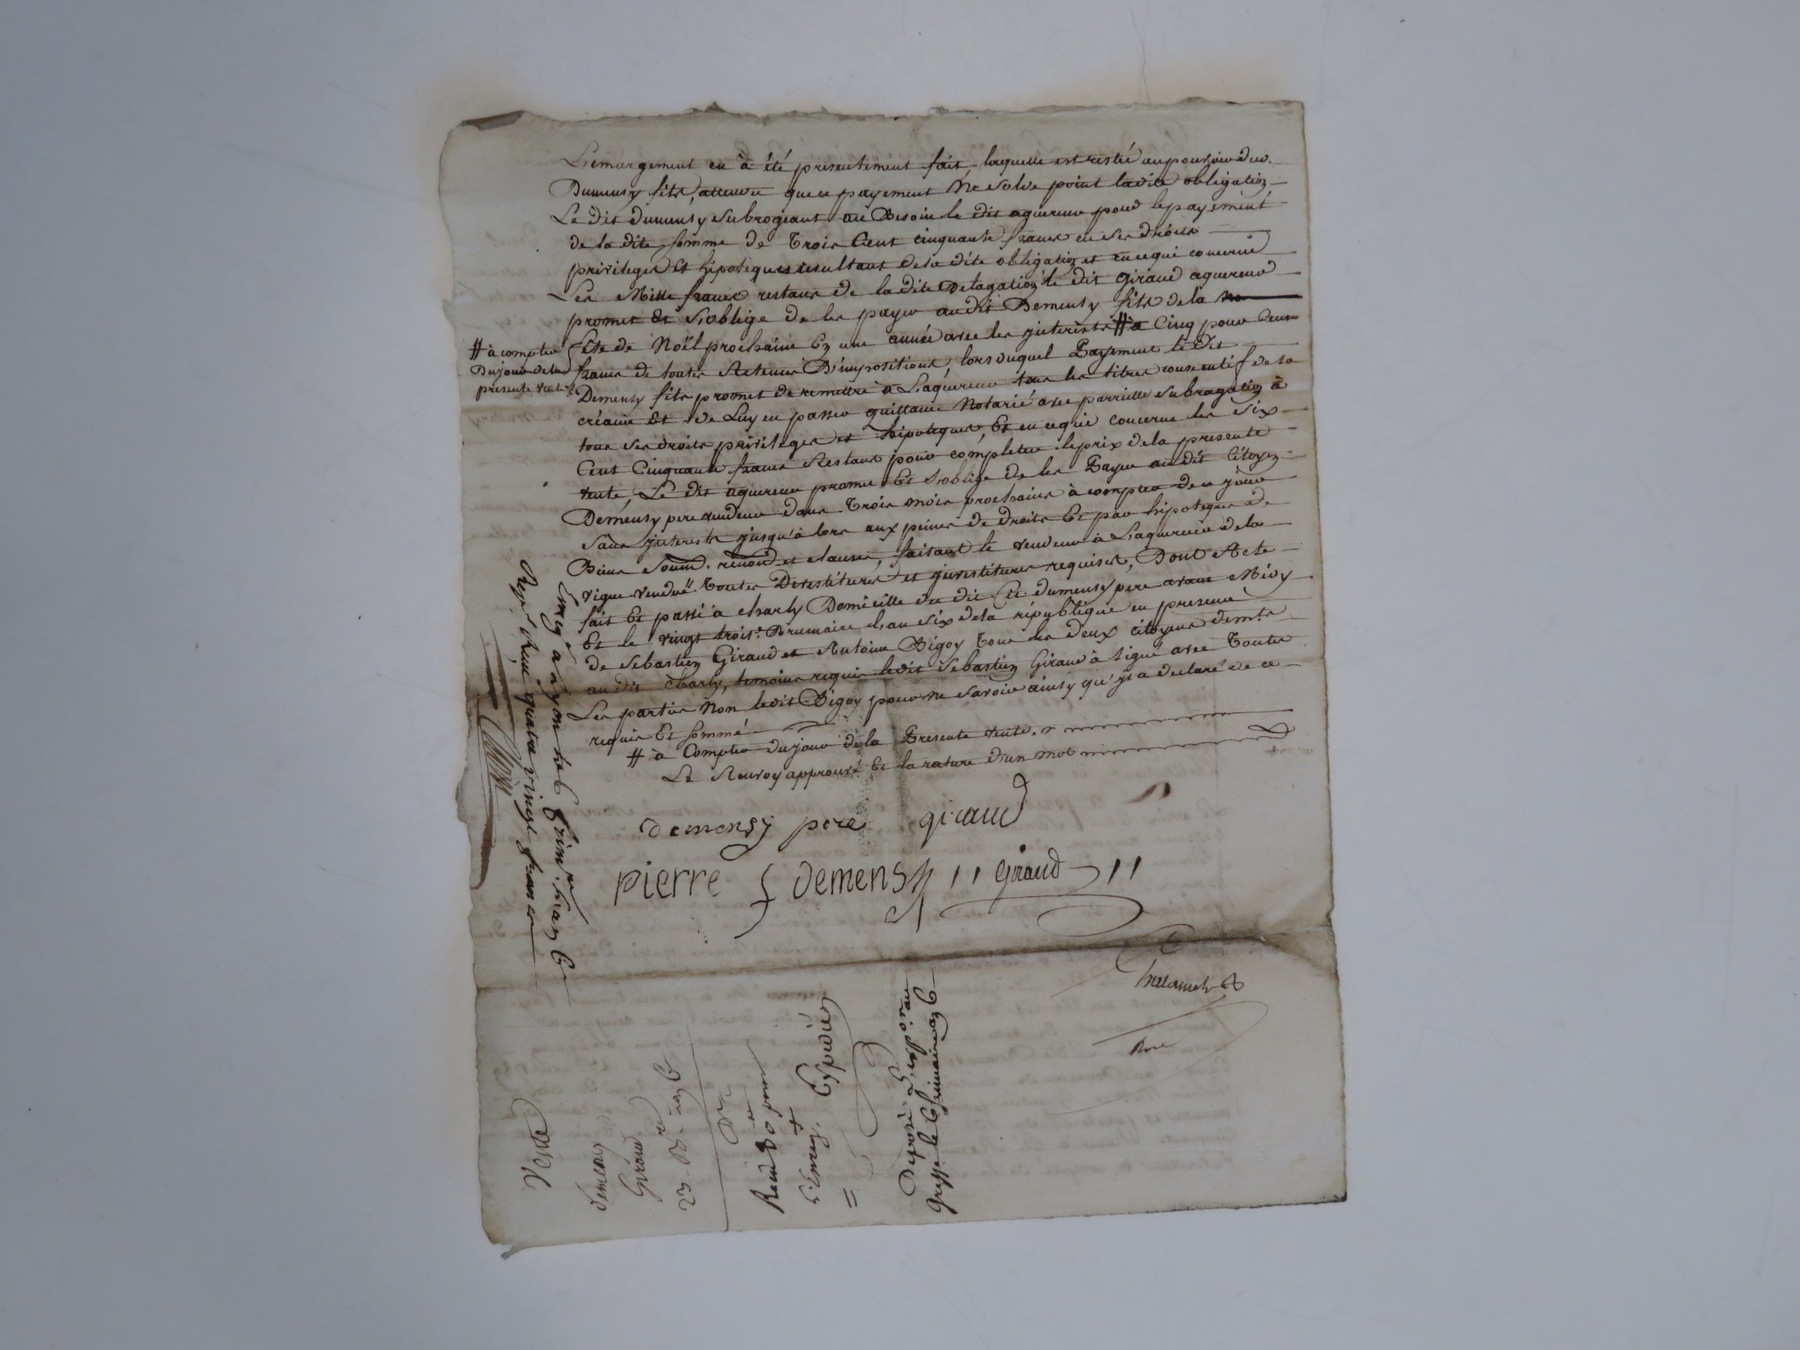 L'emargement en à été presentement fait, laquelle est restée au pouvoir dud.
Dumensy fils, attendu que ce payement ne solde point ladite obligation
Le dit dumensy subrogeant au Besoin le dit aquereur pour le payement
de la dite somme de Trois Cent cinquante francs en ses droits
privileges et hipoteques resultant de la dite obligation et en ce qui concerne
Les Mille francs restans de la dite Delagation le dit Giraud aquereur
promet et s'oblige de les payer au dit Demensy fils de la
fête de Noël prochaine En une année avec les jnterêts # à Cinq pour Cent
# à compter
Du jour de la
presente vente
francs de toutes Retenues D'impositions, lors duquel Payement le dit
Demensy fils promet de remettre à L'aquereur tous les titres constitutifs de sa
créance Et de Luy en passer quittance Notarié avec pareille subrogation à
tous ses droits privileges et hipoteques, Et en ce qui concerne les Six
Cent Cinquante francs Restans pour completer le prix de la presente
vente, Le dit aquereur promet Et s'oblige de les Payer au dit Citoyen
Demensy pere vendeur dans Trois mois prochains à compter de ce jour
sans jnterets jusqu'à lors aux peines de droits Et par hipoteque de
Biens soum. renond. et clauses, faisant le vendeur à L'aquereur de la
vigne vendüe Toutes Devestitures et jnvestitures requises, Dont Acte
fait Et passé à charly Domicille du dit Cit dumensy pere avant Midy
Et le vingt trois Brumaire L'an six de la république en presence
de Sebastien Giraud et Antoine Bigoy Tous les deux citoyens demts
au dit Charly, temoins requis ledit Sebastien Giraud à signé avec Toutes
Les parties Non ledit Bigoy pour ne savoir ainsy qu'il a declaré de ce
requis Et sommé
# à Compter du jour de la Presente vente.
Le Renvoy approuvé Et la rature d'un mot
demensy pere giraud
pierre demensy Giraud
Enreg. à Lyon le 6 frim. an 6
Reçu quatre vingt francs
Vente
Demensy
Giraud
23 Bre an 6
Expedié
Deposé
Greffe le frimaire an 6